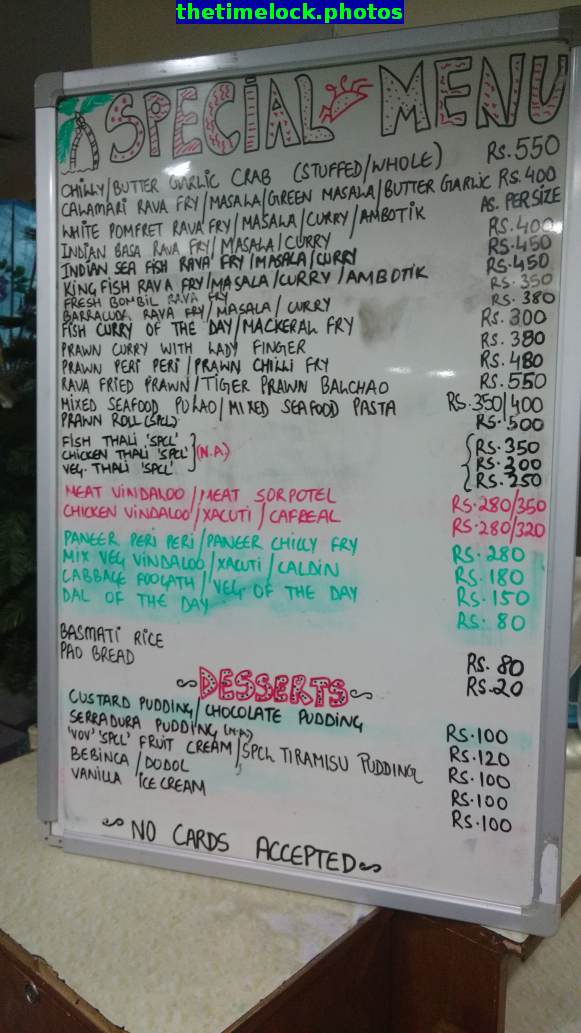 thetimelock.photos
SPECIAL MENU
CHILLY/BUTTER GARLIC CRAB (STUFFED/WHOLE) RS.550
CALAMARI RAVA FRY/MASALA/GREEN MASALA/BUTTER GARLIC RS.400
WHITE POMFRET RAVA FRY/MASALA/CURRY/AMBOTIK AS. PER SIZE
INDIAN BASA RAVA FRY/MASALA/CURRY RS.400
INDIAN SEA FISH RAVA FRY/MASALA/CURRY RS.450
KING FISH RAVA FRY/MASALA/CURRY/AMBOTIK RS.450
FRESH BOMBIL RAVA FRY RS.350
BARRACUDA RAVA FRY/MASALA/CURRY RS.380
FISH CURRY OF THE DAY/MACKERAL FRY RS.300
PRAWN CURRY WITH LADY FINGER RS.380
PRAWN PERI PERI/PRAWN CHILLI FRY RS.480
RAVA FRIED PRAWN/TIGER PRAWN BALCHAO RS.550
MIXED SEAFOOD PULAO/MIXED SEAFOOD PASTA RS.350/400
PRAWN ROLL (SPCL) RS.500
FISH THALI 'SPCL' RS.350
CHICKEN THALI 'SPCL' (N.A) RS.300
VEG. THALI 'SPCL' RS.250
MEAT VINDALOO/MEAT SORPOTEL RS.280/350
CHICKEN VINDALOO/XACUTI/CAFREAL RS.280/320
PANEER PERI PERI/PANEER CHILLY FRY RS.280
MIX VEG VINDALOO/XACUTI/CALDIN RS.180
CABBAGE FOOGATH/VEG OF THE DAY RS.150
DAL OF THE DAY RS.80
BASMATI RICE RS.80
PAO BREAD RS.20
DESSERTS
CUSTARD PUDDING/CHOCOLATE PUDDING RS.100
SERRADURA PUDDING (N.A) RS.120
'VOV' 'SPCL' FRUIT CREAM/SPCL TIRAMISU PUDDING RS.100
BEBINCA/DODOL RS.100
VANILLA ICE CREAM RS.100
NO CARDS ACCEPTED